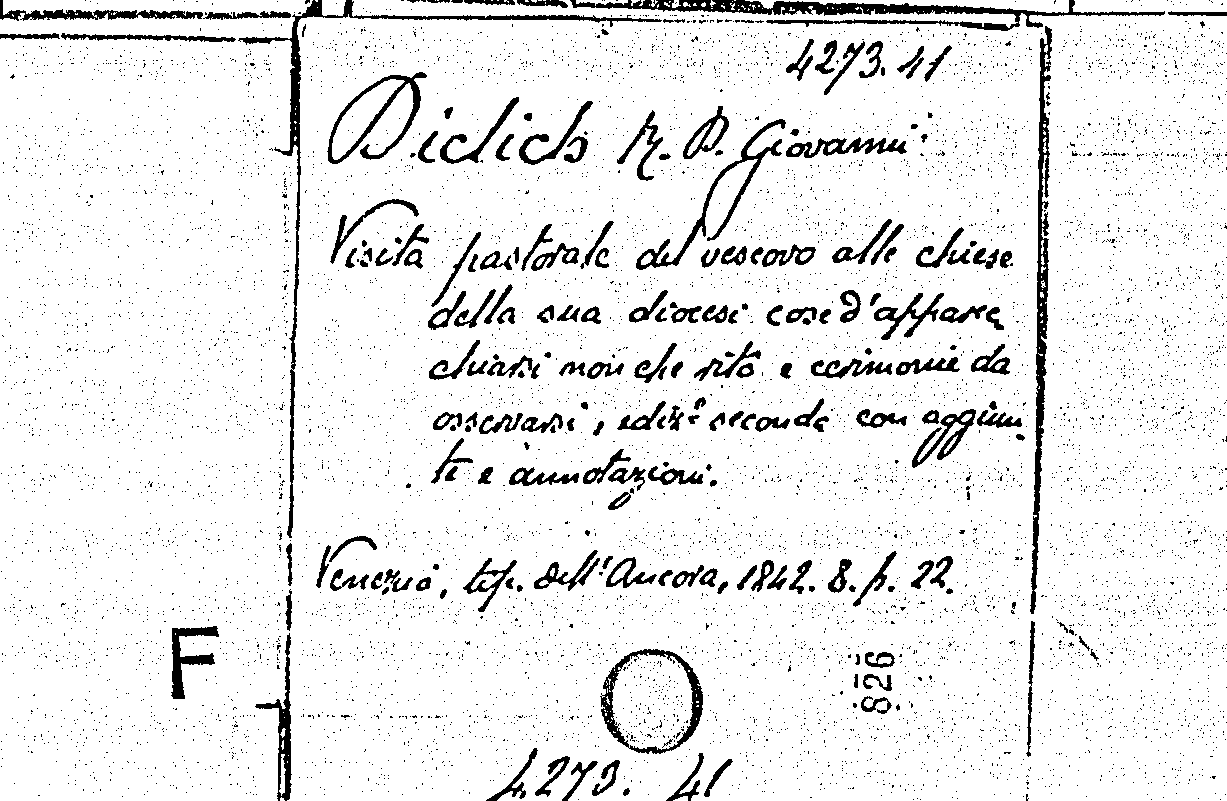 4273.41
Diclich R. D. Giovanni
Visita pastorale del vescovo alle chiese
della sua diocesi cose d'apparec
chiarsi non che riti e cerimonie da
osservarsi, ediz.e seconda con aggiun
te e annotazioni.
Venezia, tip. dell'Ancora, 1842. 8. p. 22.
F
826
4273. 41